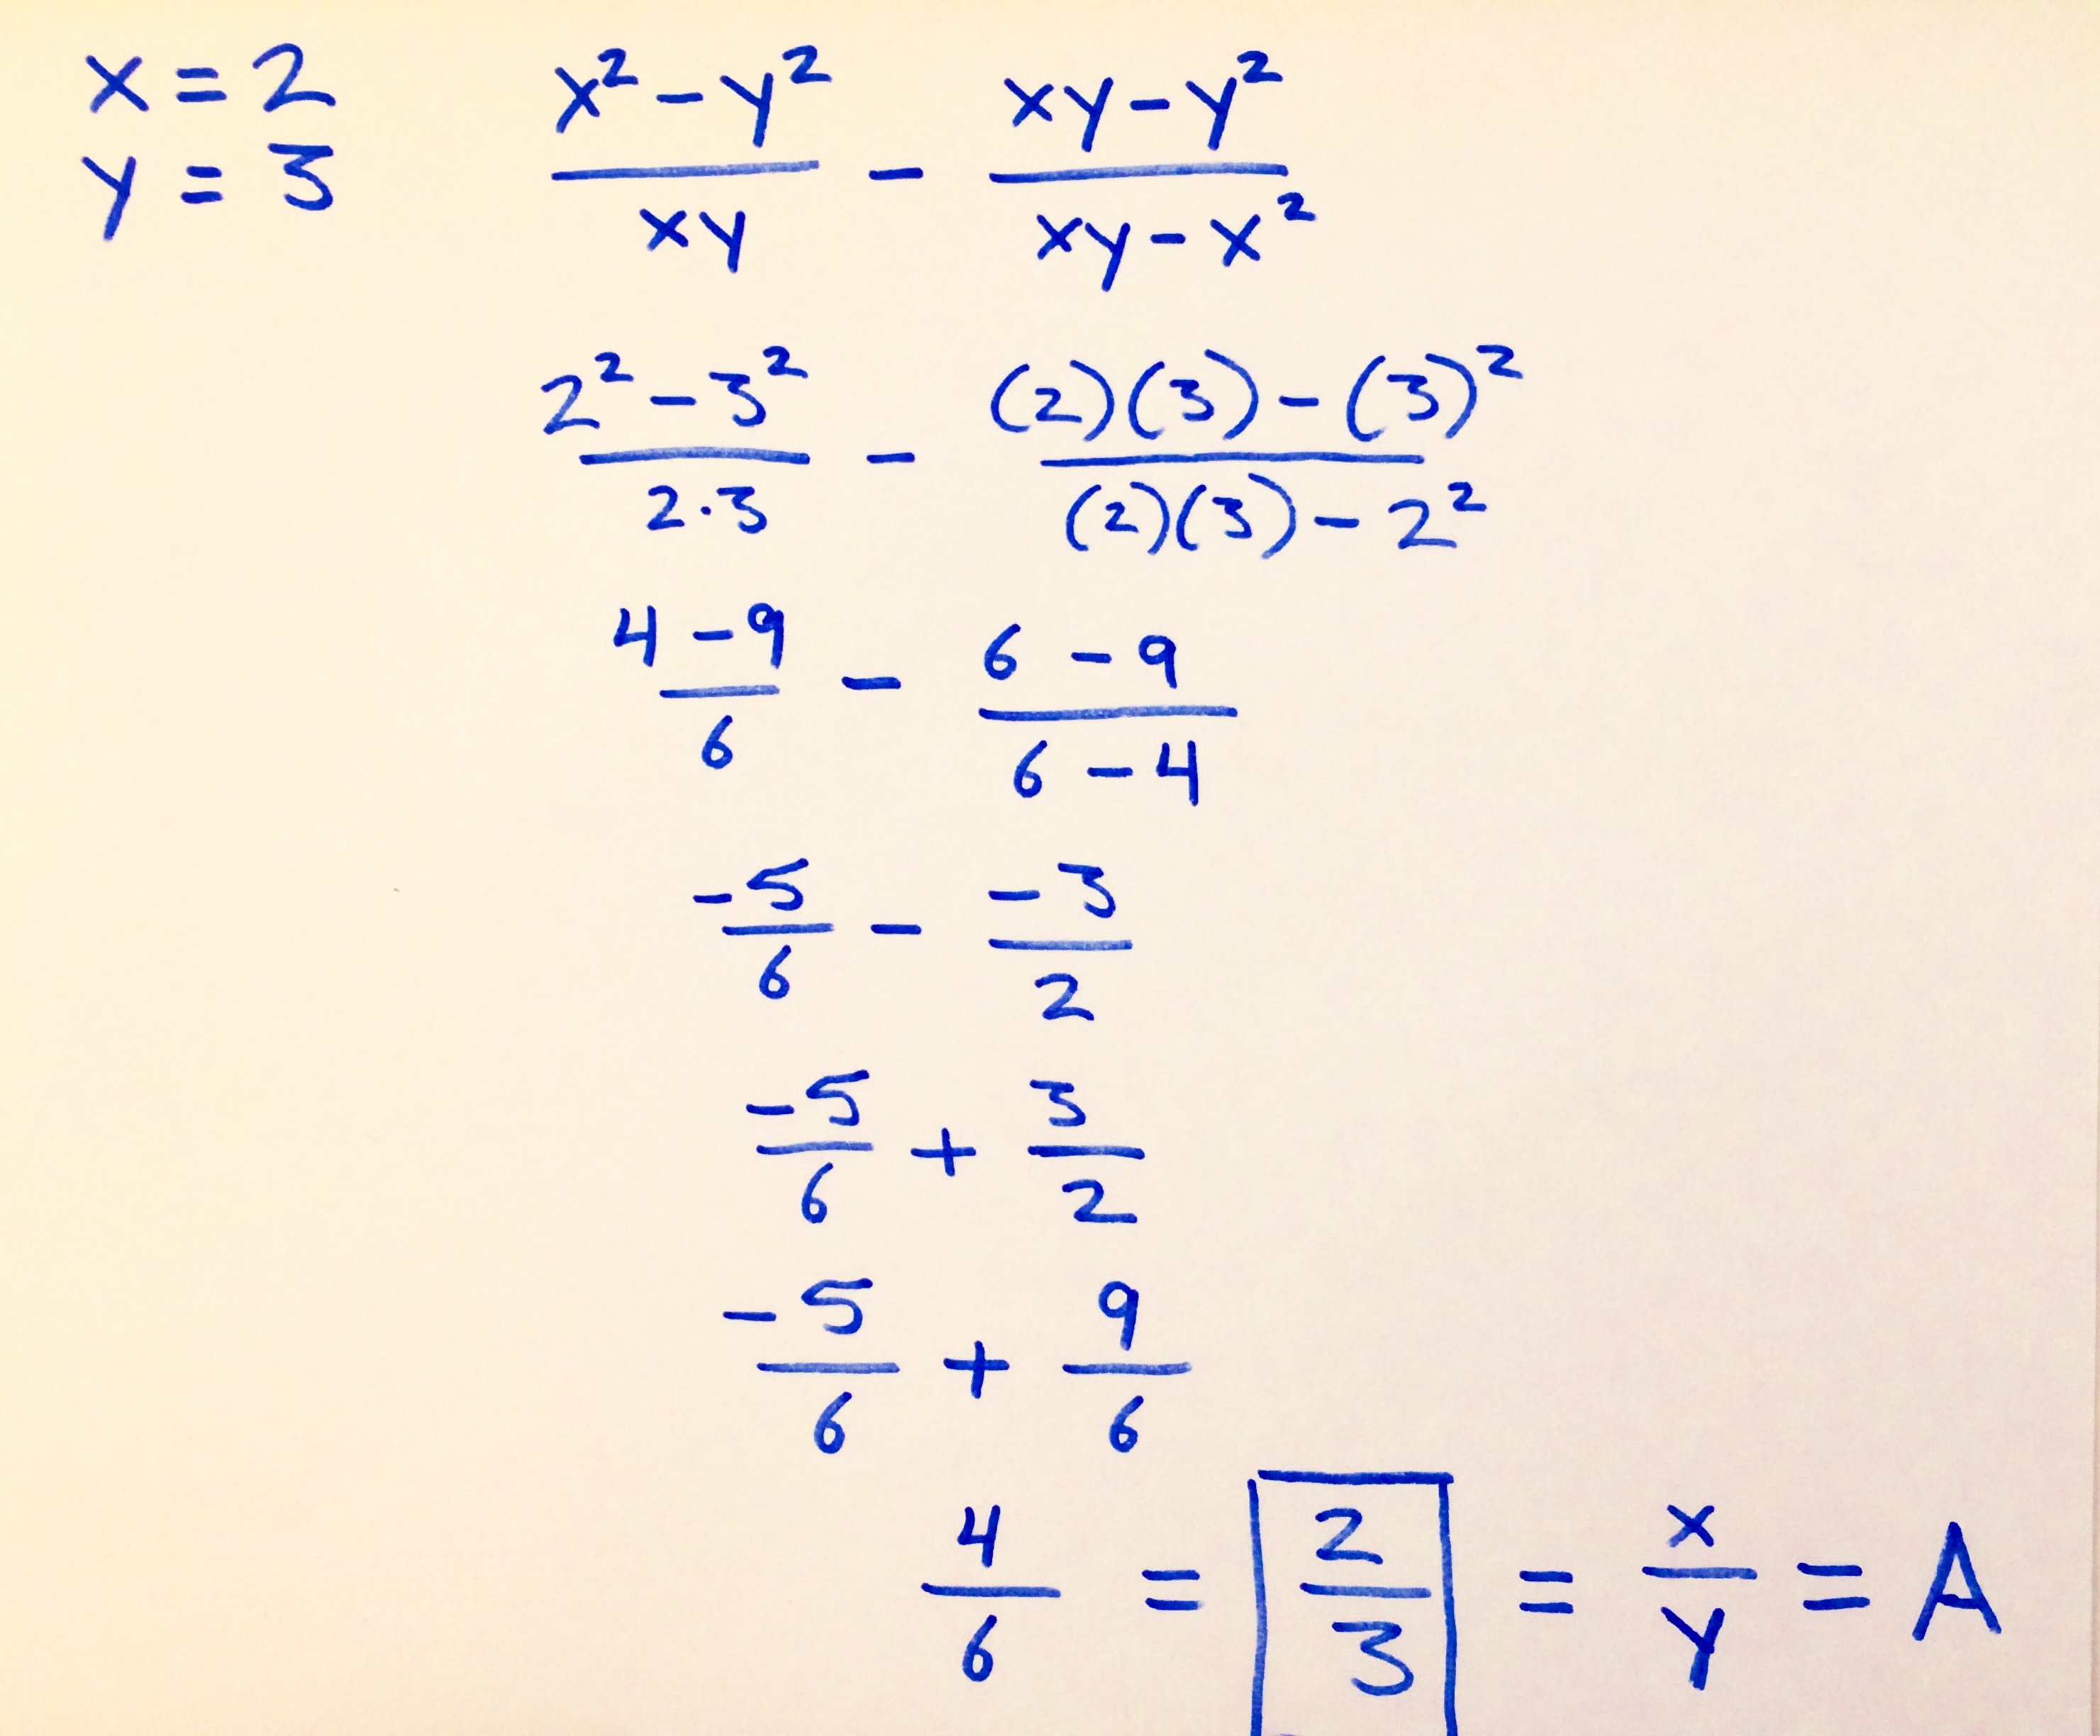 x = 2
y = 3
x² - y² / xy - xy - y² / xy - x²
2² - 3² / 2·3 - (2)(3) - (3)² / (2)(3) - 2²
4 - 9 / 6 - 6 - 9 / 6 - 4
-5 / 6 - -3 / 2
-5 / 6 + 3 / 2
-5 / 6 + 9 / 6
4 / 6 = 2 / 3 = x / y = A